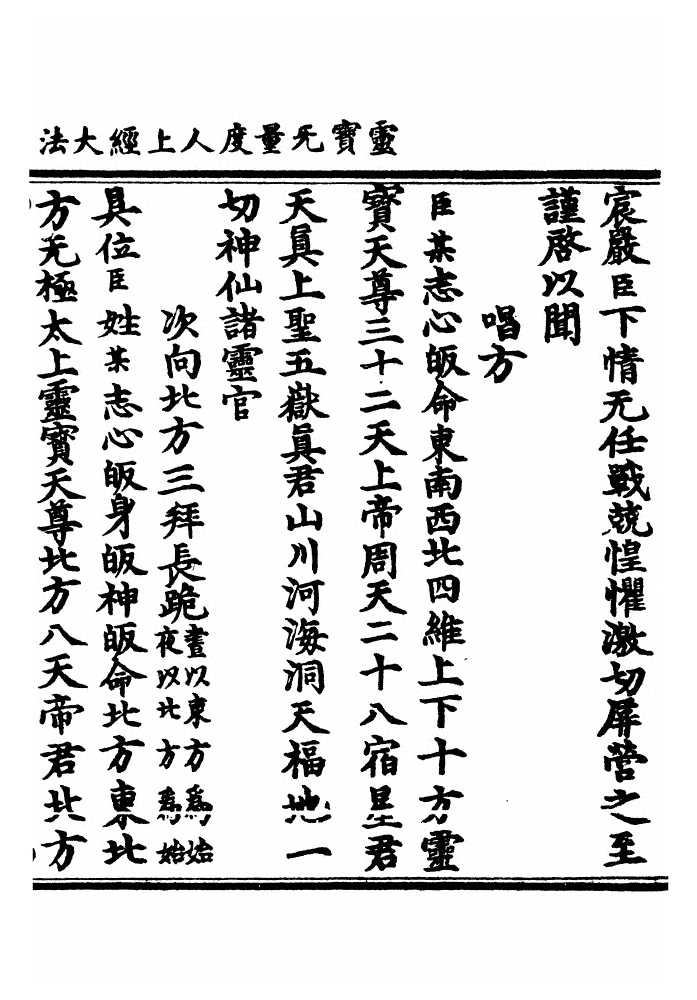 靈寶无量度人上經大法
宸嚴臣下情无任戰兢惶懼激切屏營之至
謹啓以聞
唱方
臣某志心皈命東南西北四維上下十方靈
寶天尊三十二天上帝周天二十八宿星君
天眞上聖五嶽眞君山川河海洞天福地一
切神仙諸靈官
次向北方三拜長跪晝以東方爲始夜以北方爲始
具位臣姓某志心皈身皈神皈命北方東北
方无極太上靈寶天尊北方八天帝君北方